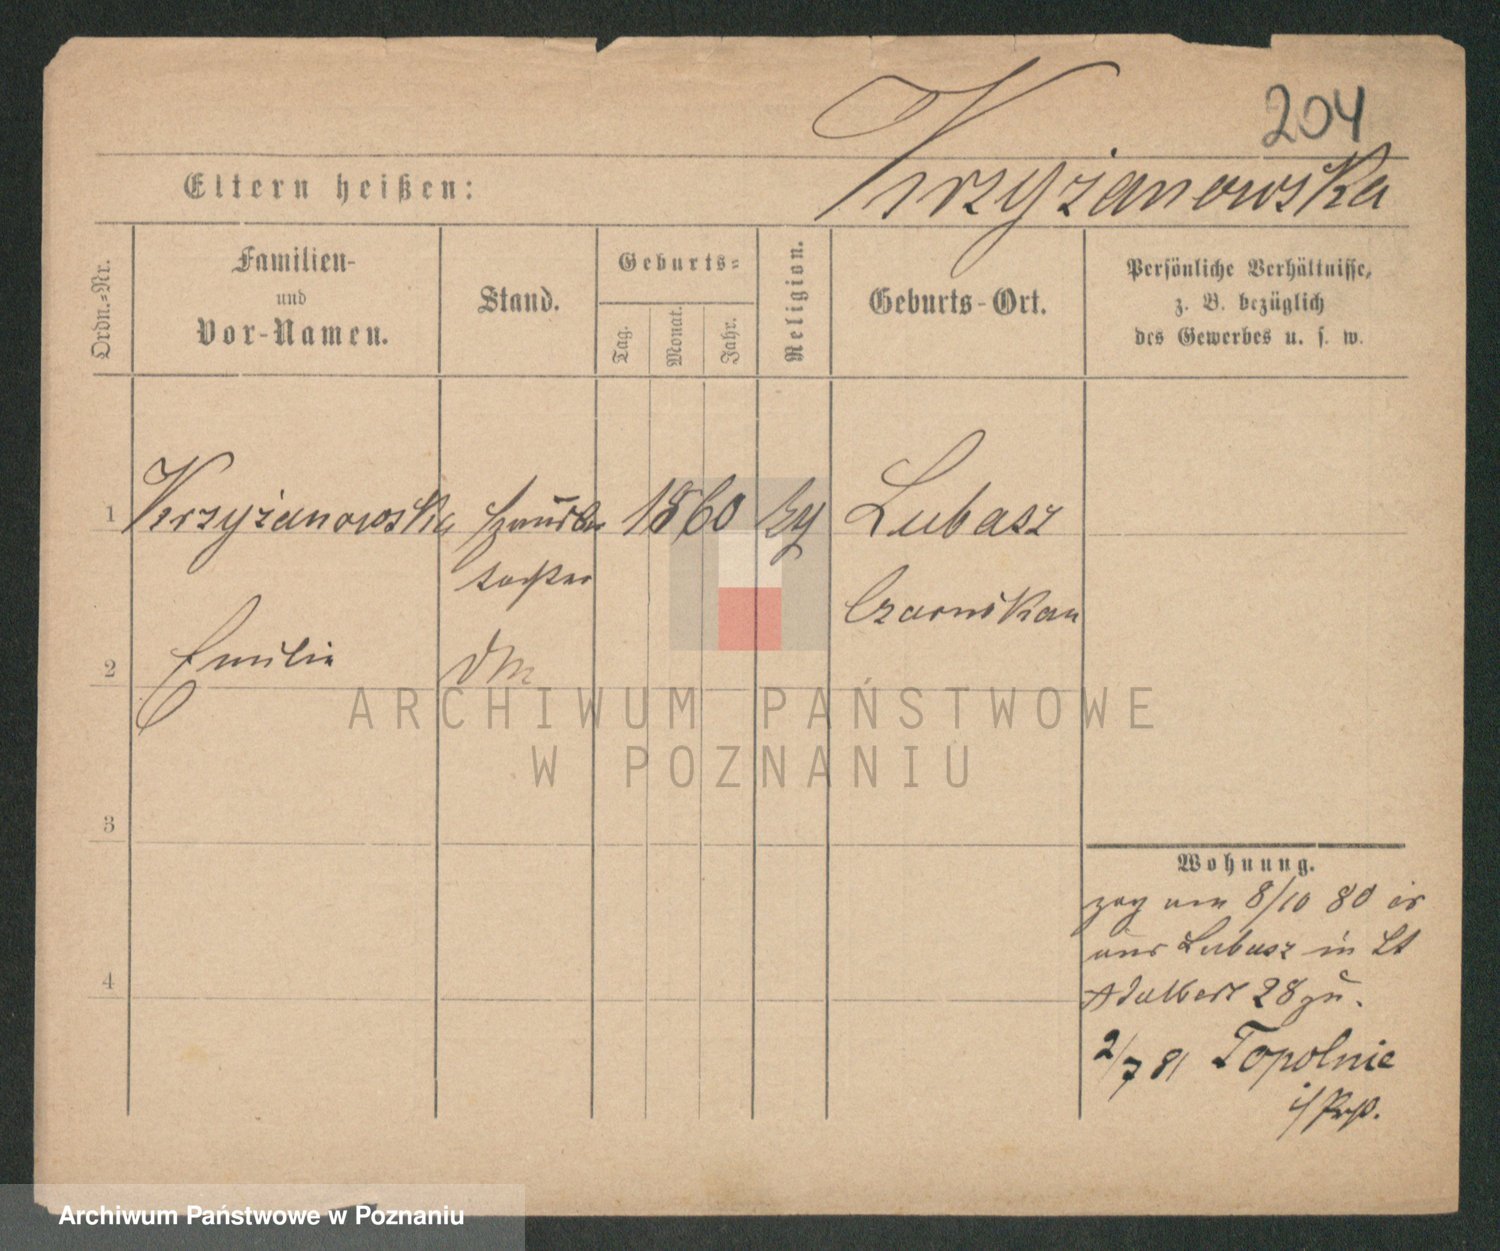 204
Krzyżanowska
Eltern heißen:
Ordn.=Nr.
Familien-
und
Vor-Namen.
Stand.
Geburts=
Tag.
Monat.
Jahr.
Religion.
Geburts-Ort.
Persönliche Verhältnisse,
z. B. bezüglich
des Gewerbes u. s. w.
1 Krzyżanowska 1860 Lubasz
tochter
Czarnikau
2 Emilie
3
4
Wohnung.
zog am 8/10 80
aus Lubasz in St
Adalbert 28 zu.
2/7 81 Topolnie
ARCHIWUM PAŃSTWOWE
W POZNANIU
Archiwum Państwowe w Poznaniu